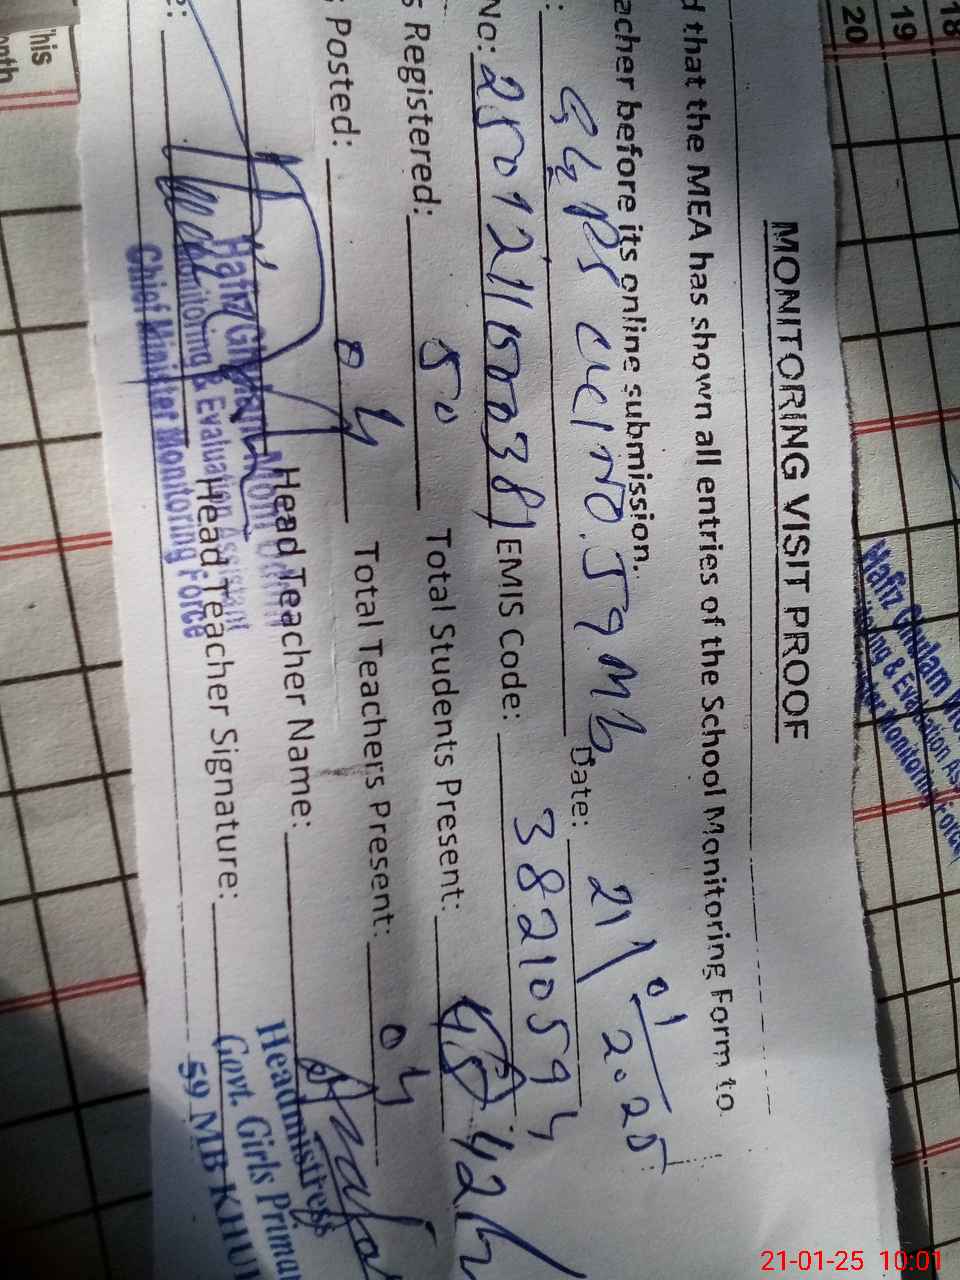 MONITORING VISIT PROOF
d that the MEA has shown all entries of the School Monitoring Form to
acher before its online submission.
: GGPS NO. 59 MB Date: 21/01/2025
No: 250121150038 EMIS Code: 38210594
s Registered: 50 Total Students Present: 42
Posted: 04 Total Teachers Present: 04
Head Teacher Name:
Head Teacher Signature:
Hafiz Ghulam
Monitoring & Evaluation Assistant
Chief Minister Monitoring Force
Headmistress
Govt. Girls Prima
59 MB KHU
Hafiz Ghulam
& Evaluation Ass
Monitoring Force
18
19
20
This
onth
21-01-25 10:01